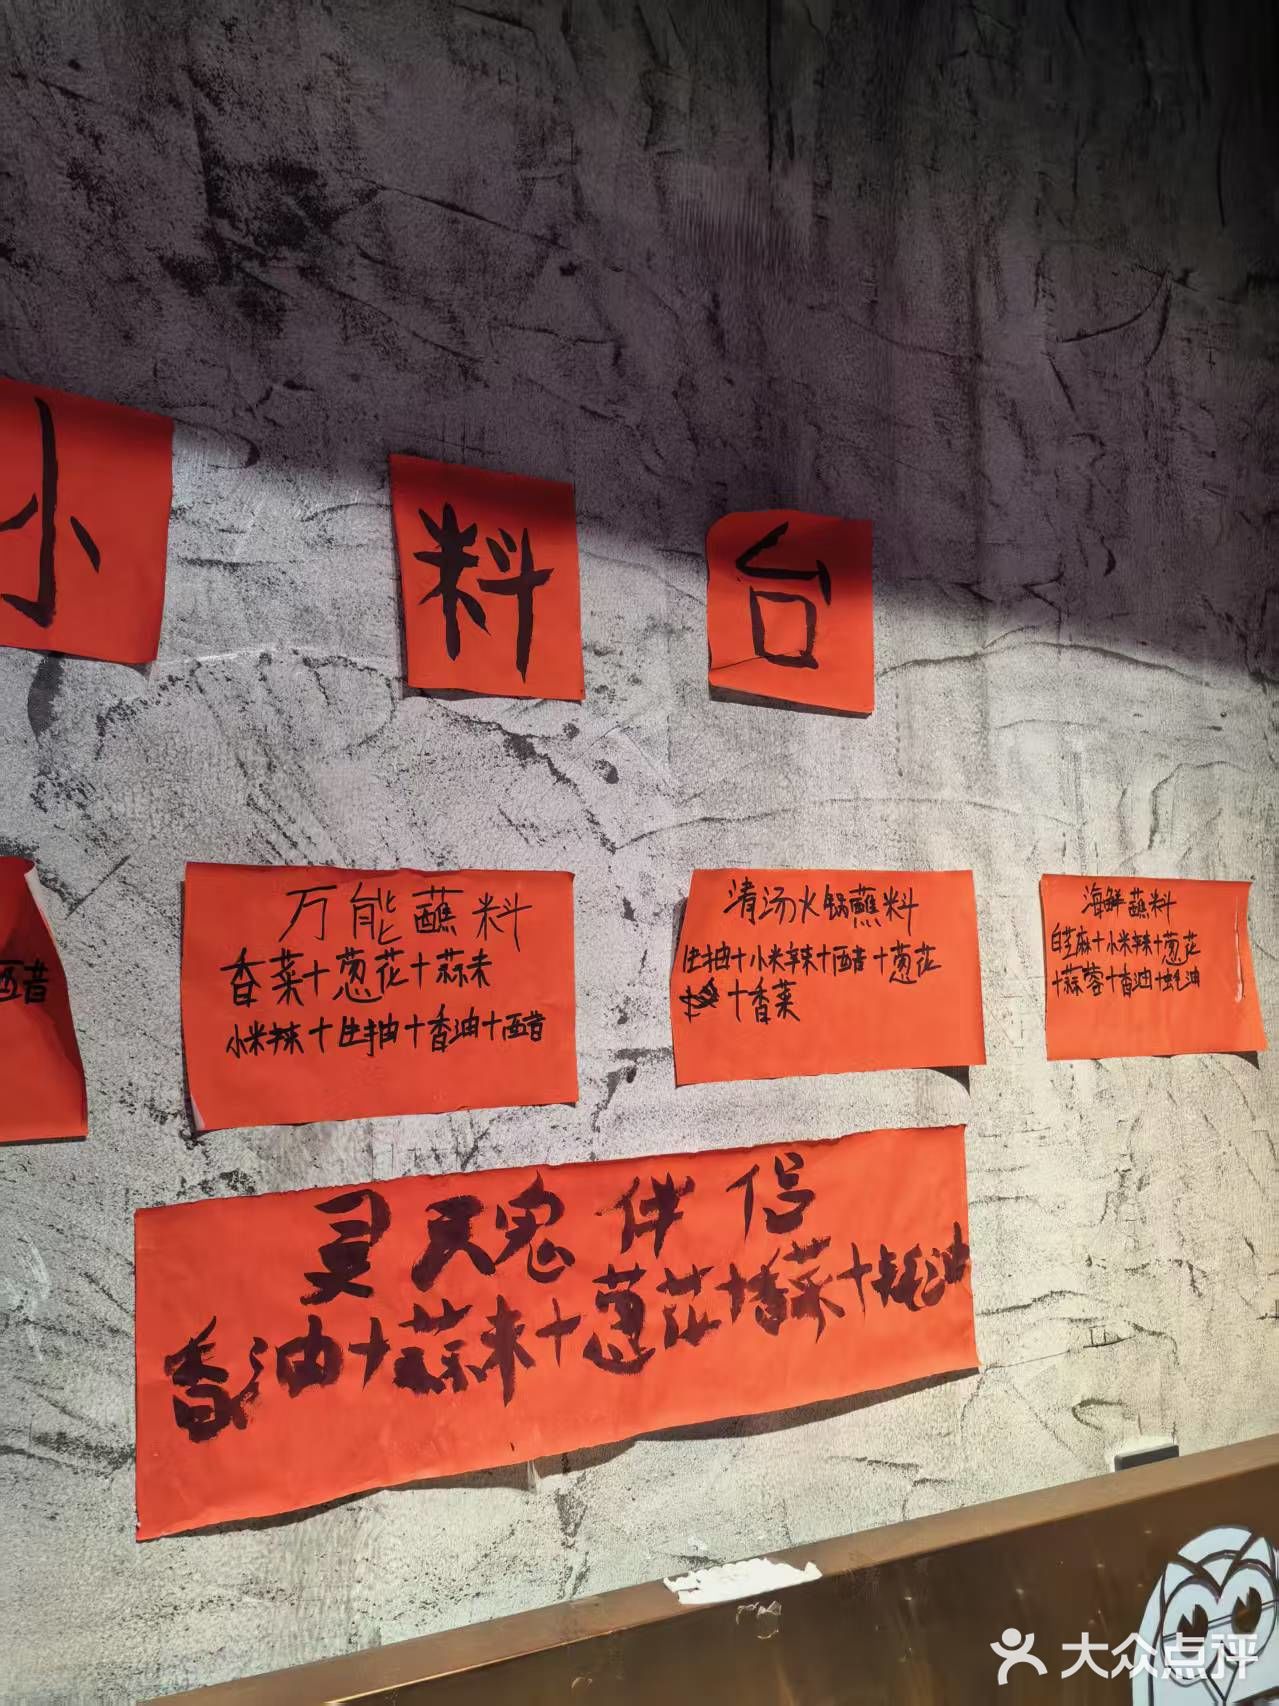 小料台
醋
万能蘸料
香菜+葱花+蒜末
小米辣+生抽+香油+醋
清汤火锅蘸料
生抽+小米辣+醋+葱花
+香菜
海鲜蘸料
白芝麻+小米辣+葱花
+蒜蓉+香油+蚝油
灵魂伴侣
香油+蒜末+葱花+香菜+耗油
大众点评